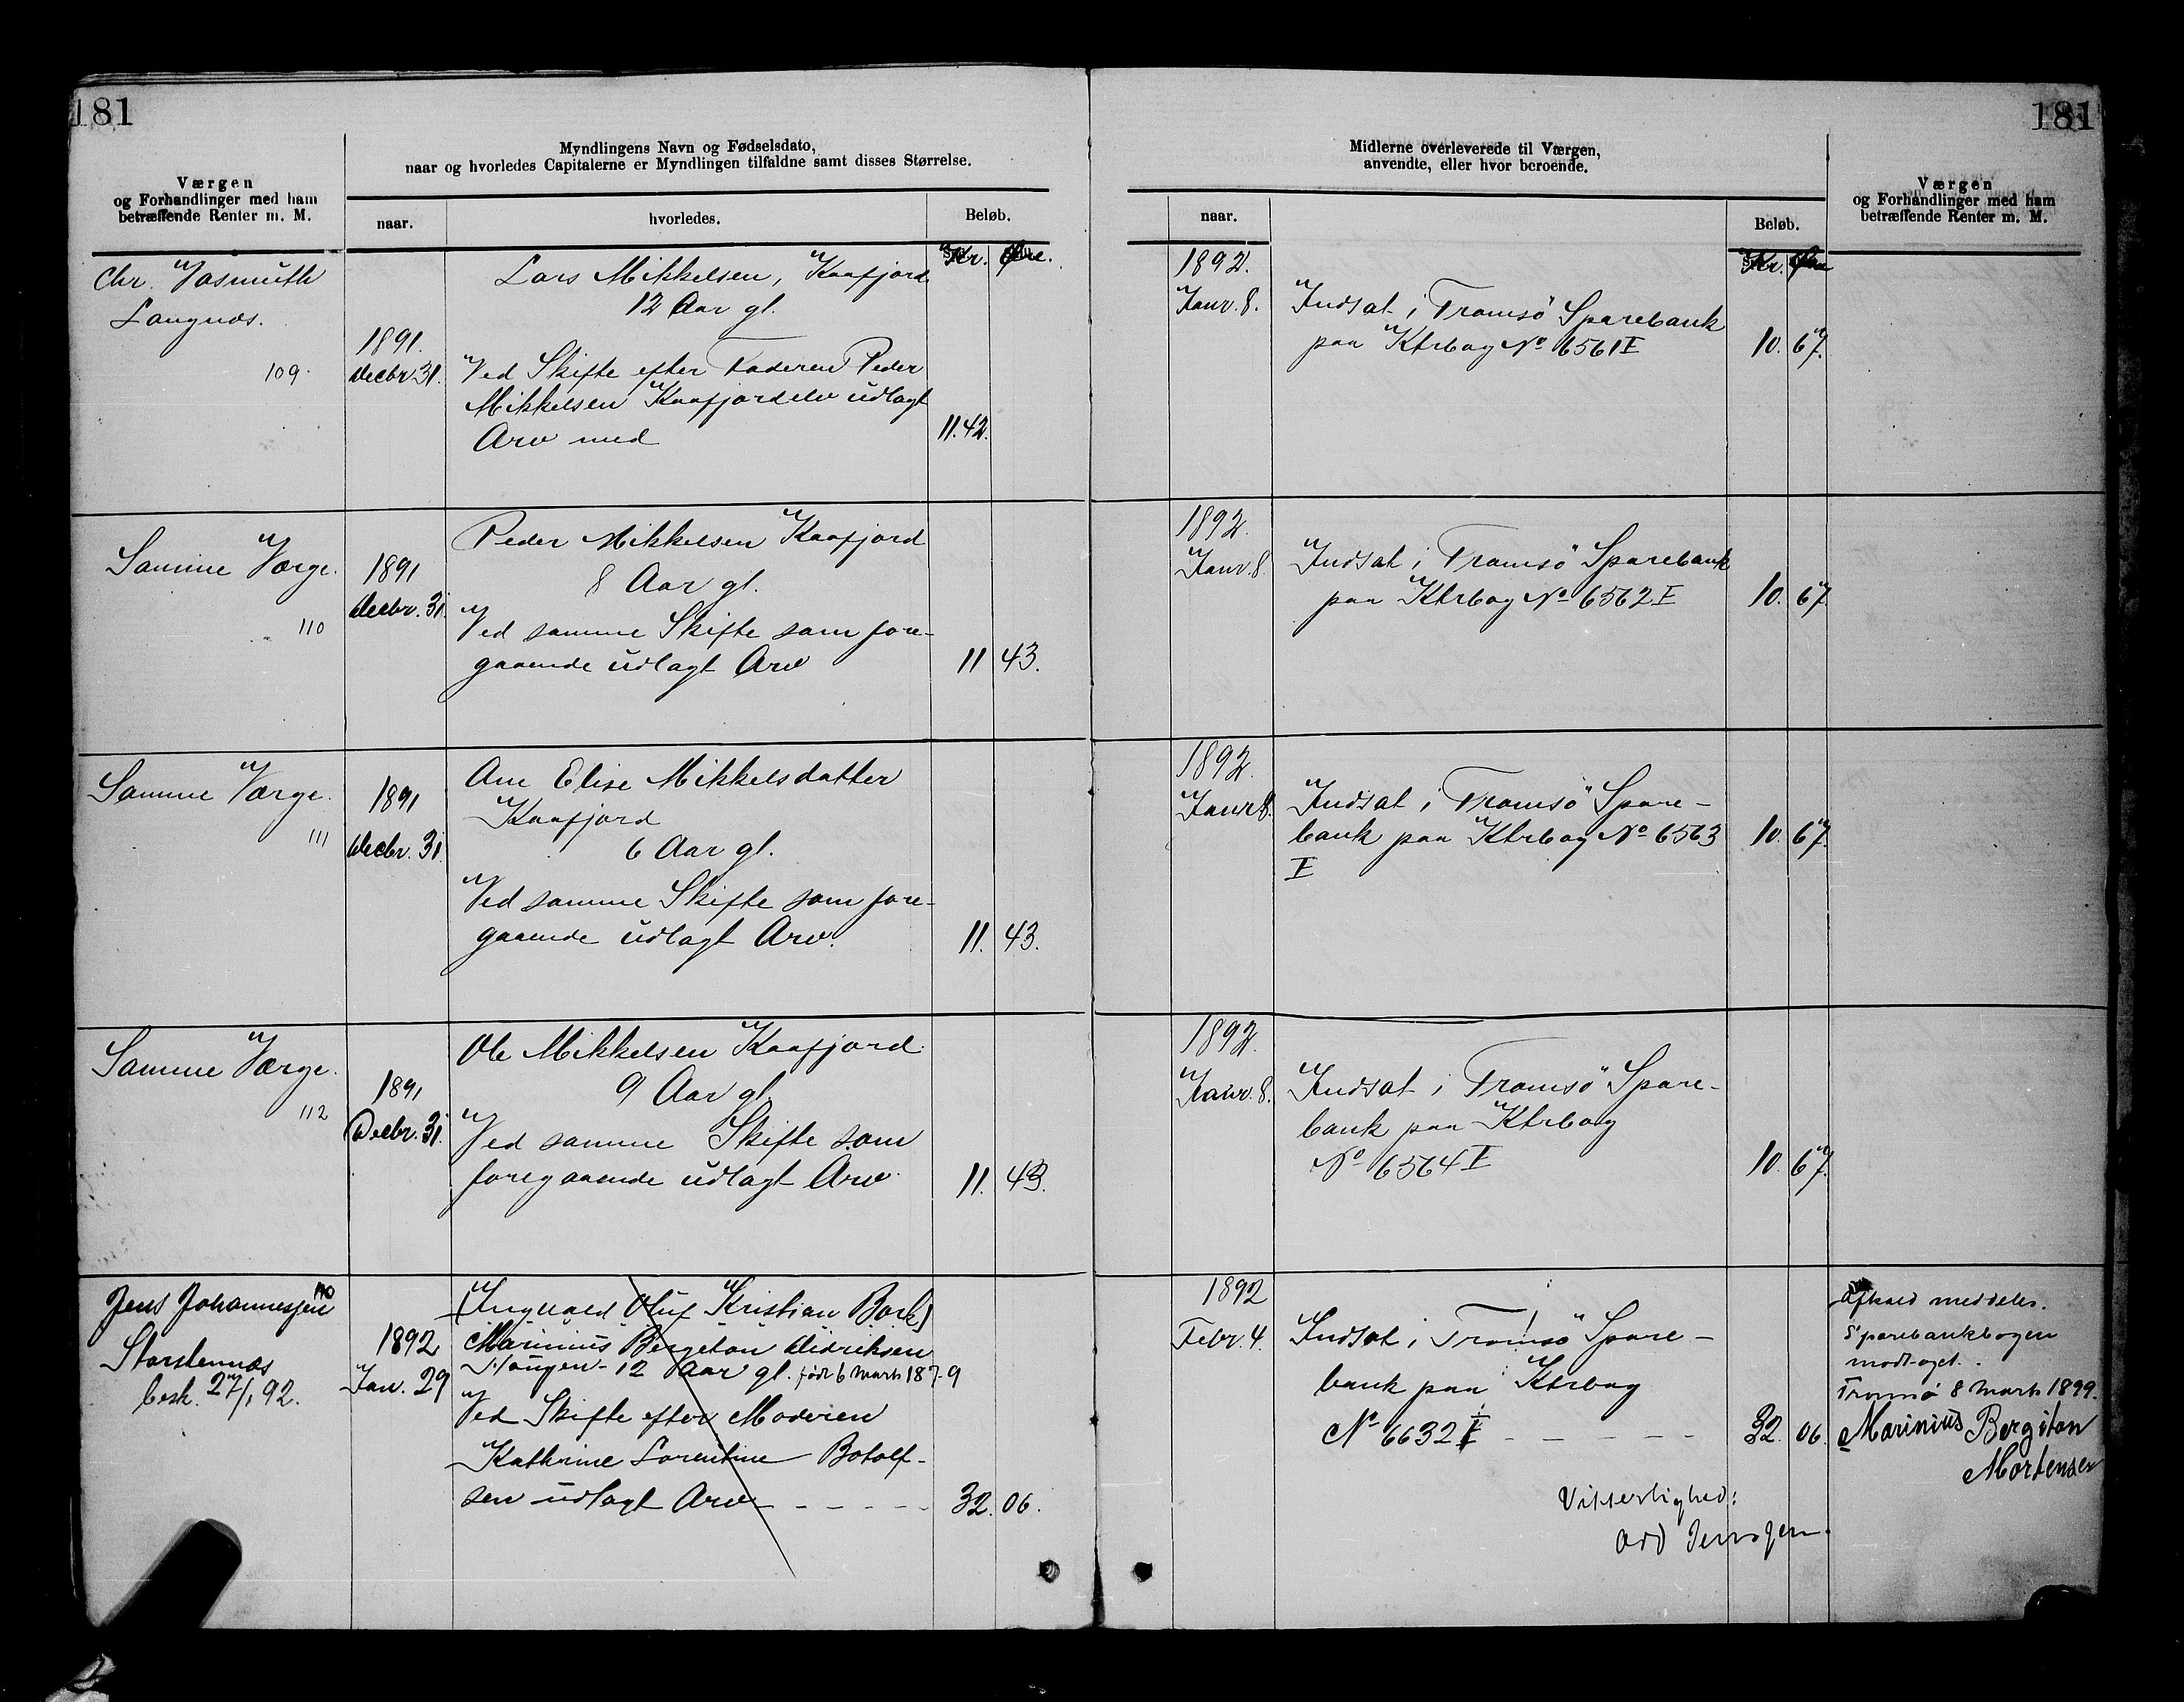 181
181
Myndlingens Navn og Fødselsdato,
naar og hvorledes Capitalerne er Myndlingen tilfaldne samt disses Størrelse.
Værgen
og Forhandlinger med ham
betræffende Renter m. M.
naar.
hvorledes.
Beløb.
Kr. Øre.
Midlerne overleverede til Værgen,
anvendte, eller hvor beroende.
naar.
Beløb.
Kr.
Værgen
og Forhandlinger med ham
betræffende Renter m. M.
Chr. Vasmuth
Langnæs.
109.
1891.
Decbr 31.
Lars Mikkelsen, Kaafjord
12 Aar gl.
Ved Skifte efter Faderen Peder
Mikkelsen Kaafjordelv udlagt
Arv med 11.42.
1892.
Janr. 8.
Indsat i Tromsö Sparebank
paa Ktrbog No 6561 I 10. 67.
Samme Værge.
110
1891
Decbr. 31.
Peder Mikkelsen Kaafjord
8 Aar gl.
Ved samme Skifte som fore-
gaaende udlagt Arv 11 43.
1892.
Janr. 8.
Indsat i Tromsö Sparebank
paa Ktrbog No 6562 I 10. 67
Samme Værge.
111
1891
Decbr. 31.
Ane Elise Mikkelsdatter
Kaafjord
6 Aar gl.
Ved samme Skifte som fore-
gaaende udlagt Arv. 11. 43.
1892.
Janr 8.
Indsat i Tromsö Spare-
bank paa Ktrbog No 6563
I 10. 67.
Samme Værge.
112
1891
Decbr. 31.
Ole Mikkelsen Kaafjord.
9 Aar gl.
Ved samme Skifte som
foregaaende udlagt Arv. 11. 43.
1892.
Janr. 8.
Indsat i Tromsö Spare-
bank paa Ktrbog
No 6564 I 10. 67.
Jens Johannessen
Storstennæs
besk. 27/1 92.
1892
Jan. 29
(Ingvald Oluf Kristian Bork)
Marinius Bergeton Didriksen
Haugen - 12 Aar gl. født 6 Marts 1879
Ved Skifte efter Moderen
Kathrine Lorentine Botolf-
sen udlagt Arv - - - - - 32. 06.
1892
Febr. 4.
Indsat i Tromsö Spare-
bank paa Ktrbog
No 6632 I - - - - - 32. 06.
Vitterlighed:
Afkald meddeles.
Sparebankbogen
modtaget.
Tromsö 8 Marts 1899.
Marinius Bergiton
Mortensen